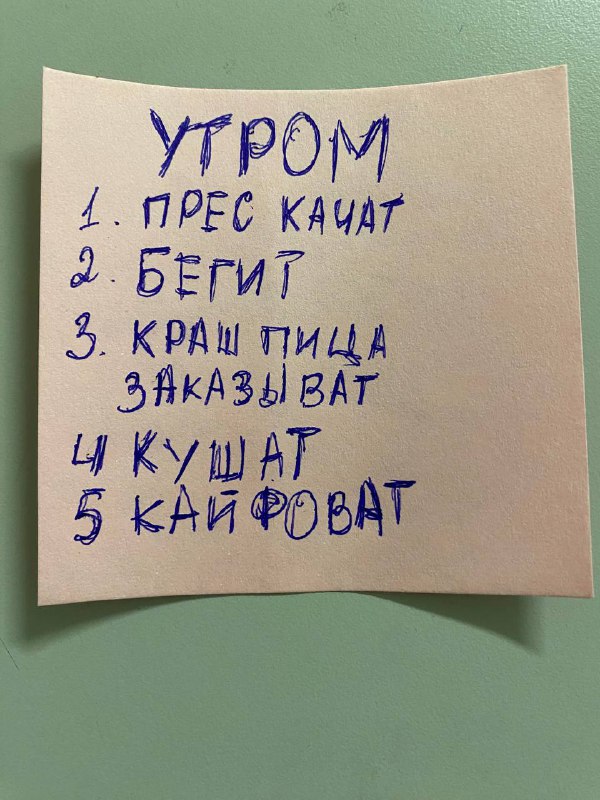 УТРОМ
1. ПРЕС КАЧАТ
2. БЕГИТ
3. КРАШ ПИЦА
ЗАКАЗЫВАТ
4 КУШАТ
5 КАЙФОВАТ